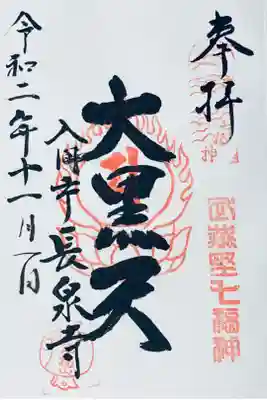 奉拝
武蔵野七福神
大黒天
入間市長泉寺
令和二年十一月一日